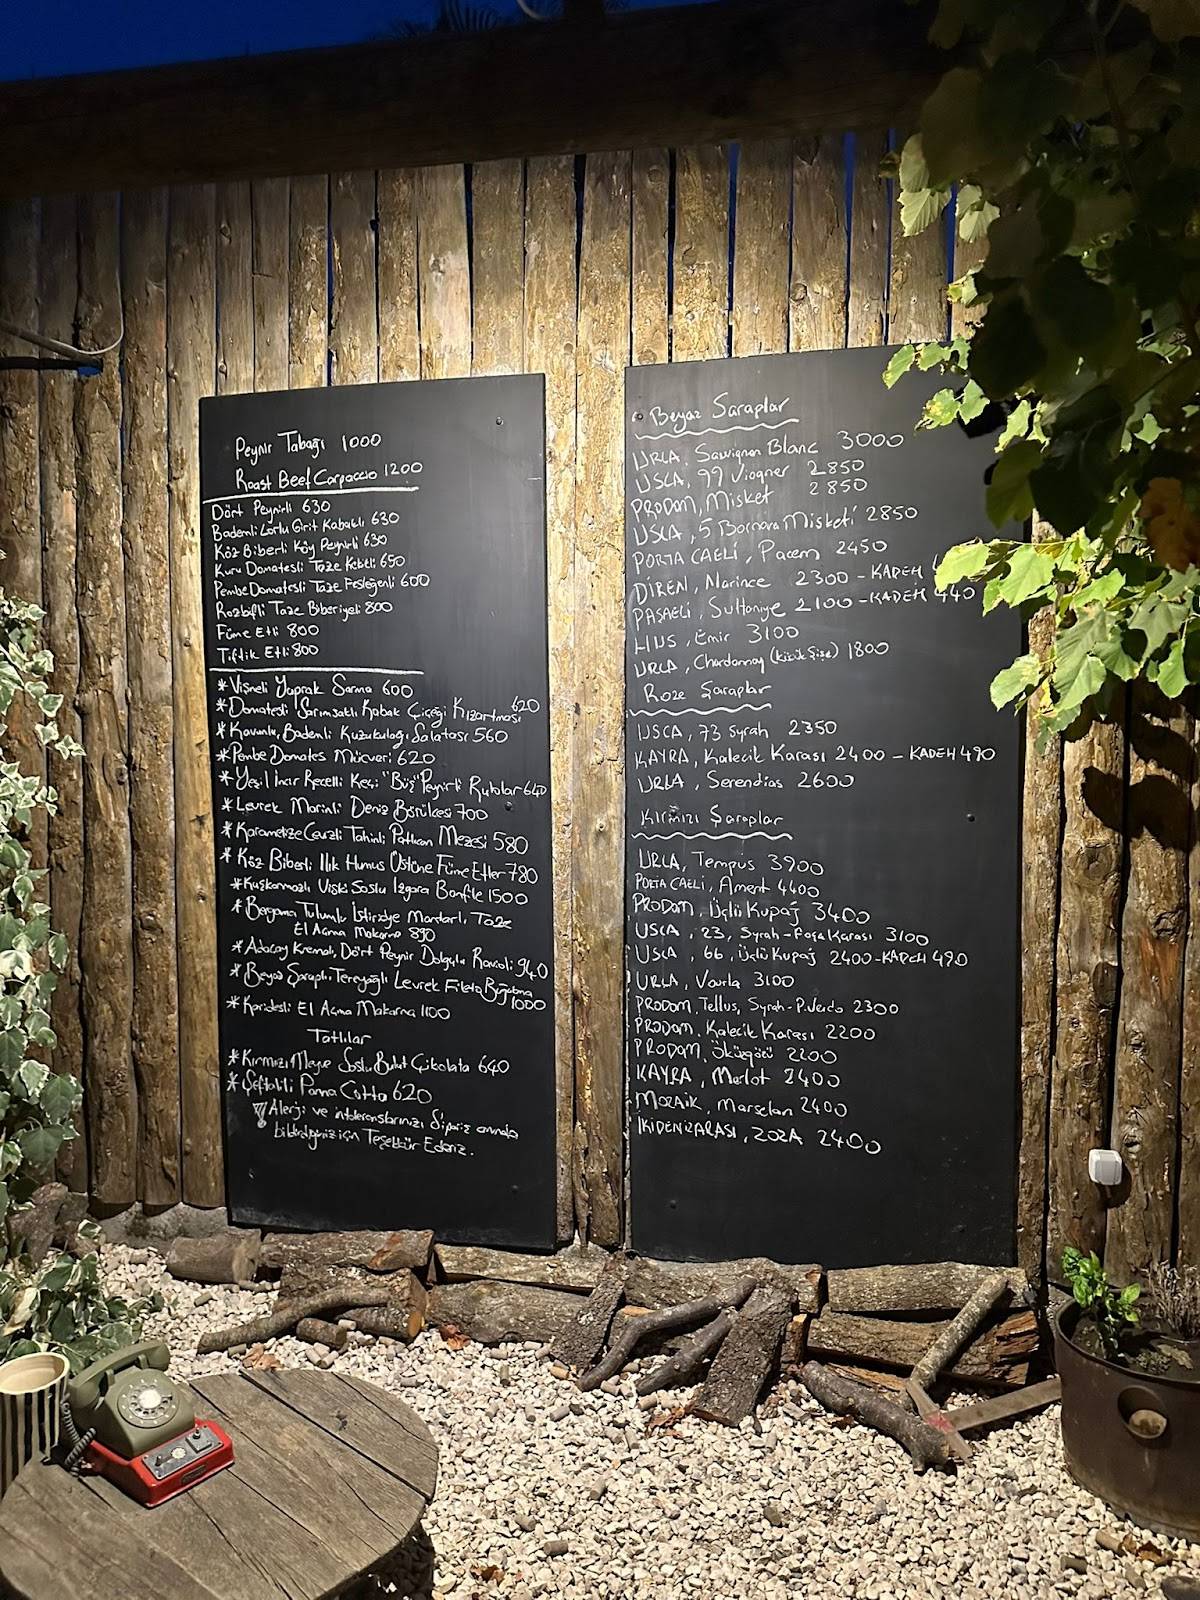 Peynir Tabağı 1000
Roast Beef Carpaccio 1200
Dört Peynirli 630
Bademli Lorlu Girit Kabaklı 630
Köz Biberli Köy Peynirli 630
Kuru Domatesli Taze Kekli 650
Pembe Domatesli Taze Fesleğenli 600
Rozbifli Taze Biberiyeli 800
Füme Etli 800
Tiftik Etli 800
* Vişneli Yaprak Sarma 600
* Domatesli Sarımsaklı Kabak Çiçeği Kızartması 620
* Kavunlu, Bademli Kuzukulağı Salatası 560
* Pembe Domates Mücveri 620
* Yeşil İncir Reçelli Keçi "Büş" Peynirli Rulolar 640
* Levrek Marinli Deniz Börülcesi 700
* Karamelize Cevizli Tahinli Patlıcan Mezesi 580
* Köz Biberli Ilık Humus Üstüne Füme Etler 780
* Kuşkonmazlı Viski Soslu Izgara Bonfile 1500
* Bergama Tulumlu İstiridye Mantarlı, Taze
El Açma Makarna 890
* Adaçayı Kremalı, Dört Peynir Dolgulu Ravioli 940
* Beyaz Şaraplı, Tereyağlı Levrek Fileto Buğulama
1000
* Karidesli El Açma Makarna 1100
Tatlılar
* Kırmızı Meyve Soslu Bulut Çikolata 640
* Şeftalili Panna Cotta 620
! Alerji ve intoleranslarınızı Sipariş anında
bildirdiğiniz için Teşekkür Ederiz.
Beyaz Şaraplar
URLA, Sauvignon Blanc 3000
USCA, 99 Viogner 2850
PRODOM, Misket 2850
USCA, 5 Bornova Misketi 2850
PORTA CAELİ, Pacem 2450
DİREN, Narince 2300 - KADEH
PAŞAELİ, Sultaniye 2100 - KADEH 440
LIUS, Emir 3100
URLA, Chardonnay (Küçük Şişe) 1800
Roze Şaraplar
USCA, 73 Syrah 2350
KAYRA, Kalecik Karası 2400 - KADEH 490
URLA, Serendias 2600
Kırmızı Şaraplar
URLA, Tempus 3900
PORTA CAELİ, Ament 4400
PRODOM, Üçlü Kupaj 3400
USCA, 23, Syrah - Foça Karası 3100
USCA, 66, Üçlü Kupaj 2400 - KADEH 490
URLA, Vourla 3100
PRODOM, Tellus, Syrah - P.Verdo 2300
PRODOM, Kalecik Karası 2200
PRODOM, Öküzgözü 2200
KAYRA, Merlot 2400
MOZAİK, Marselan 2400
İKİDENİZARASI, ZOZA 2400